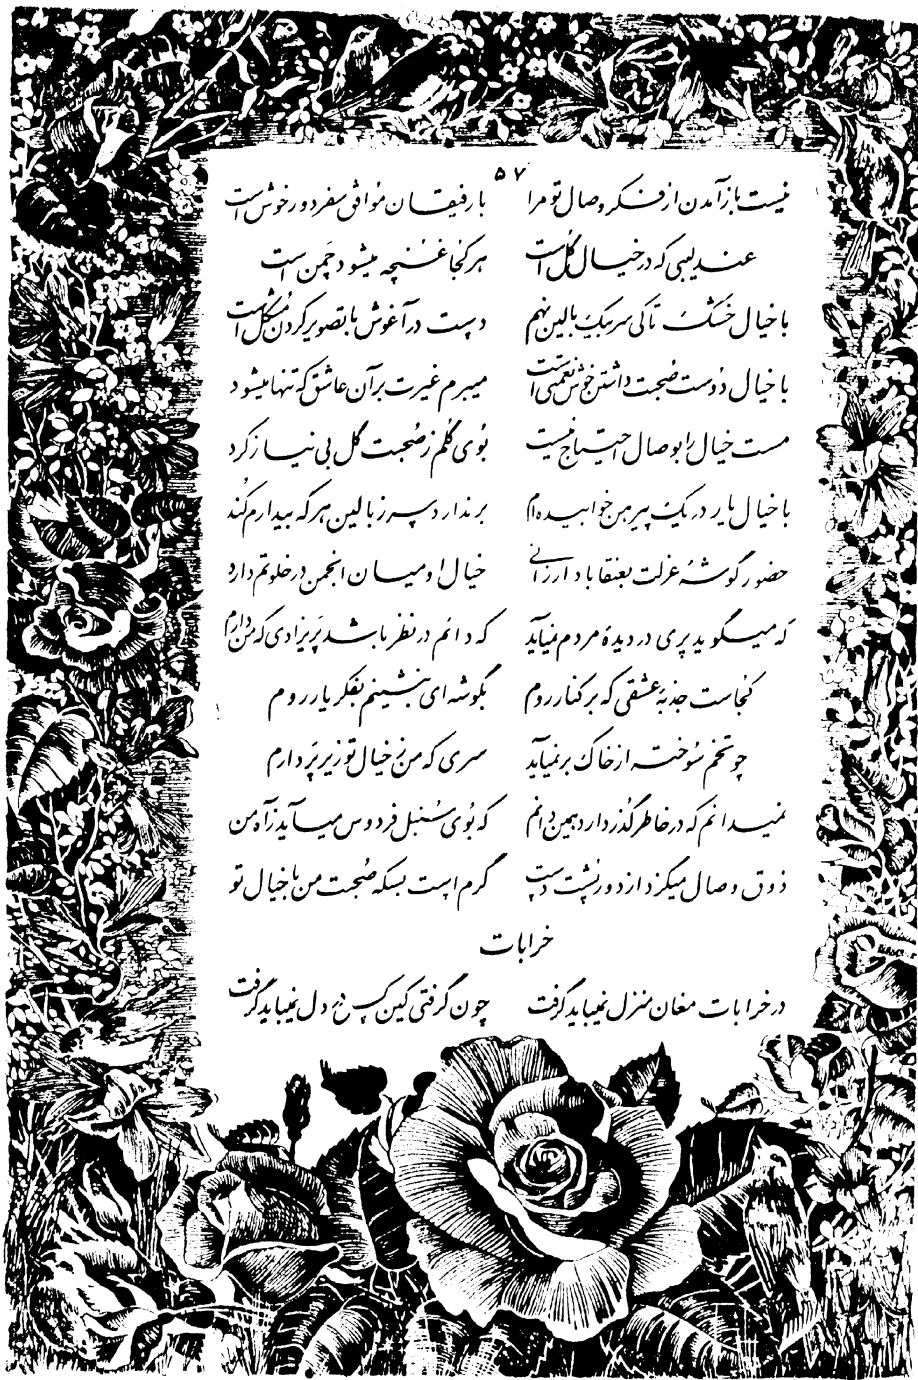 ۵۷
نیست باز آمدن از فکر و صال تو مرا    با رفیقان موافق سفر دور خوش است
عندلیبی که در خیال گل است    هر کجا غنچه میشود چمن است
با خیال خشک تا کی سر بیک بالین نهم    دست در آغوش با تصویر کردن مشکل است
با خیال دوست صحبت داشتن خوش نعمتی است    میبرم غیرت بر آن عاشق که تنها میشود
مست خیال را بوصال احتیاج نیست    بوی گلم ز صحبت گل بی نیاز کرد
با خیال یار در یک پیرهن خوابیده‌ام    بر ندارد سر ز بالین هر که بیدارم کند
حضور گوشهٔ عزلت بعنقا باد ارزانی    خیال او میان انجمن در خلوتم دارد
که میگوید پری در دیدهٔ مردم نمیآید    که دائم در نظر باشد پریزادی که من دارم
کجاست جذبهٔ عشقی که بر کنار روم    بگوشه‌ای بنشینم بفکر یار روم
چو تخم سوخته از خاک بر نمیآید    سری که من ز خیال تو زیر پر دارم
نمیدانم که در خاطر گذر دارد همین دانم    که بوی سنبل فردوس میآید ز آه من
ذوق وصال میگزد از دور پشت دست    گرم است بسکه صحبت من با خیال تو
خرابات
در خرابات مغان منزل نمیباید گرفت    چون گرفتی کین کس در دل نمیباید گرفت